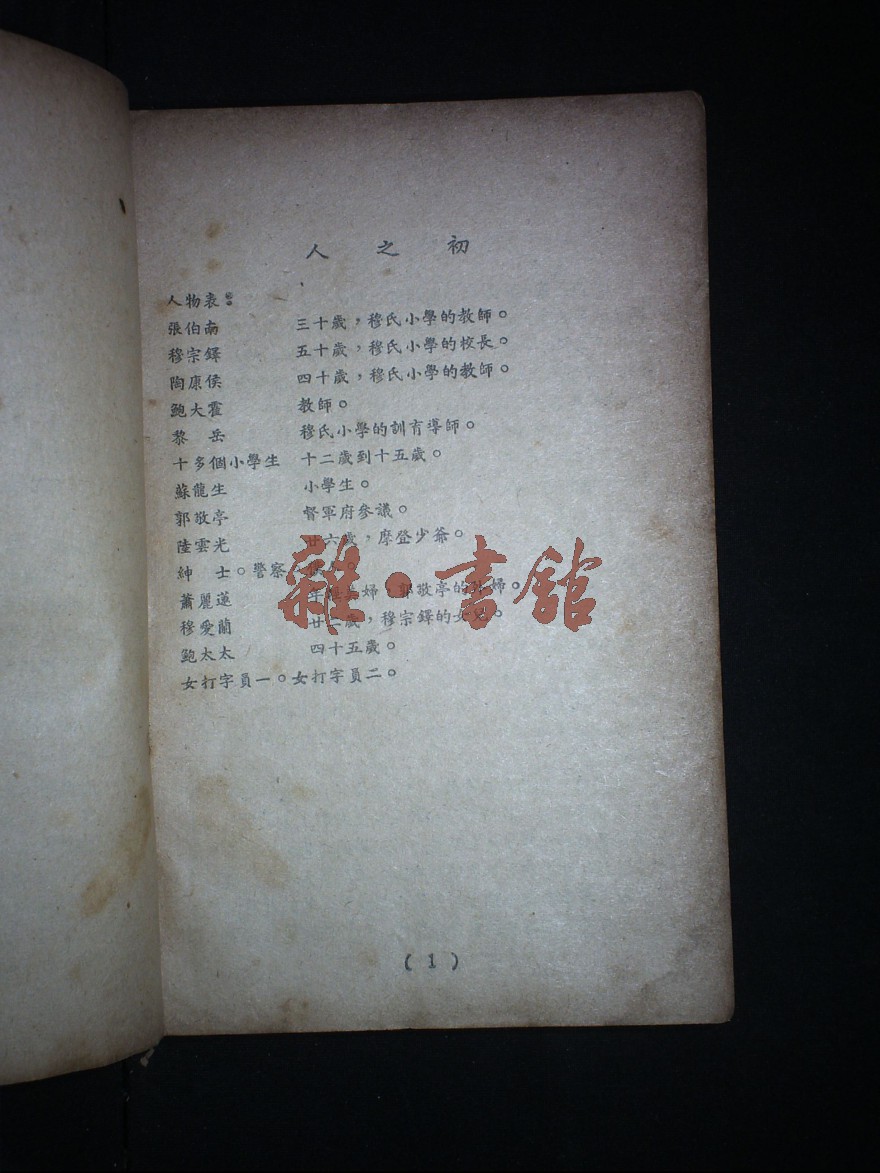 人之初
人物表：
張伯南 三十歲，穆氏小學的教師。
穆宗鐸 五十歲，穆氏小學的校長。
陶康侯 四十歲，穆氏小學的教師。
鮑大霍 教師。
黎岳 穆氏小學的訓育導師。
十多個小學生 十二歲到十五歲。
蘇龍生 小學生。
郭敬亭 督軍府參議。
陸雲光 廿六歲，摩登少爺。
紳士。警察。
蕭麗蓮 婦，郭敬亭的 婦。
穆愛蘭 廿二歲，穆宗鐸的女兒。
鮑太太 四十五歲。
女打字員一。女打字員二。
雜·書館
(1)